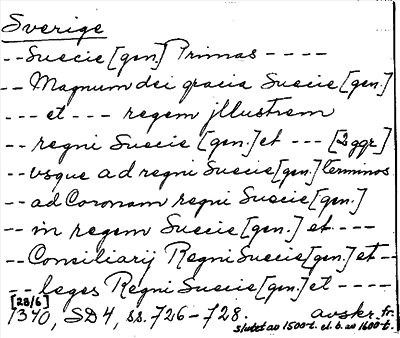 Sverige
-- Suecie [gen.] Primas ----
-- Magnum dei gracia Suecie [gen.]
--- et --- regem jllustrem
-- regni Suecie [gen.] et --- [2 ggr]
-- vsque ad regni Suecie [gen.] terminos
-- ad Coronam regni Suecie [gen.]
-- in regem Suecie [gen.] et ----
-- Consiliarij Regni Suecie [gen.] et --
-- leges Regni Suecie [gen.] et ----
[28/6]
1340, SD4, ss. 726-728. avskr. fr.
slutet av 1500-t. el. b. av 1600-t.